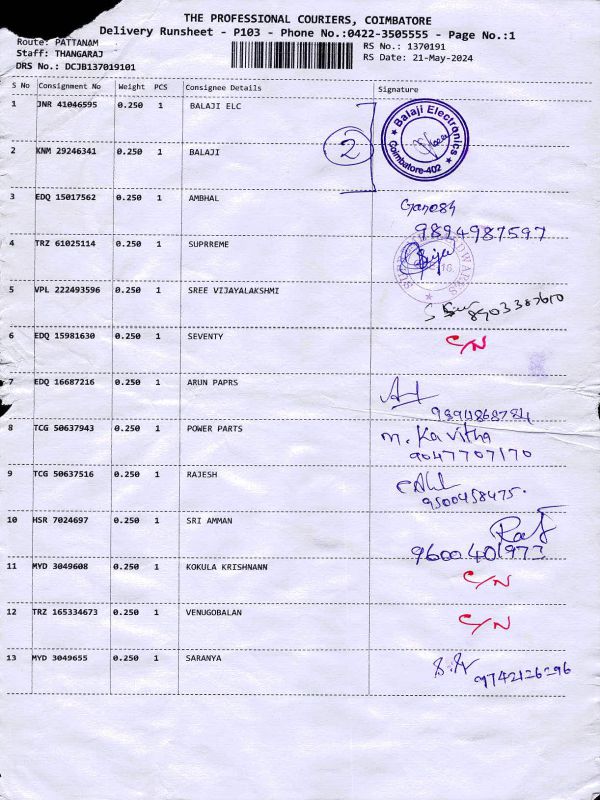 THE PROFESSIONAL COURIERS, COIMBATORE
Delivery Runsheet - P103 - Phone No.:0422-3505555 - Page No.:1
Route: PATTANAM
RS No.: 1370191
Staff: THANGARAJ
RS Date: 21-May-2024
DRS No.: DCJB137019101
S No Consignment No Weight PCS Consignee Details Signature
1 JNR 41046595 0.250 1 BALAJI ELC
Balaji Electronics
Coimbatore-402
2
2 KNM 29246341 0.250 1 BALAJI
3 EDQ 15017562 0.250 1 AMBHAL Ganesh
9894987597
4 TRZ 61025114 0.250 1 SUPRREME
5 VPL 222493596 0.250 1 SREE VIJAYALAKSHMI
6 EDQ 15981630 0.250 1 SEVENTY C/N
7 EDQ 16687216 0.250 1 ARUN PAPRS
8 TCG 50637943 0.250 1 POWER PARTS m. Kavitha
9047707170
9 TCG 50637516 0.250 1 RAJESH
9500458475.
10 HSR 7024697 0.250 1 SRI AMMAN
11 MYD 3049608 0.250 1 KOKULA KRISHNANN C/N
12 TRZ 165334673 0.250 1 VENUGOBALAN C/N
13 MYD 3049655 0.250 1 SARANYA
9742126296